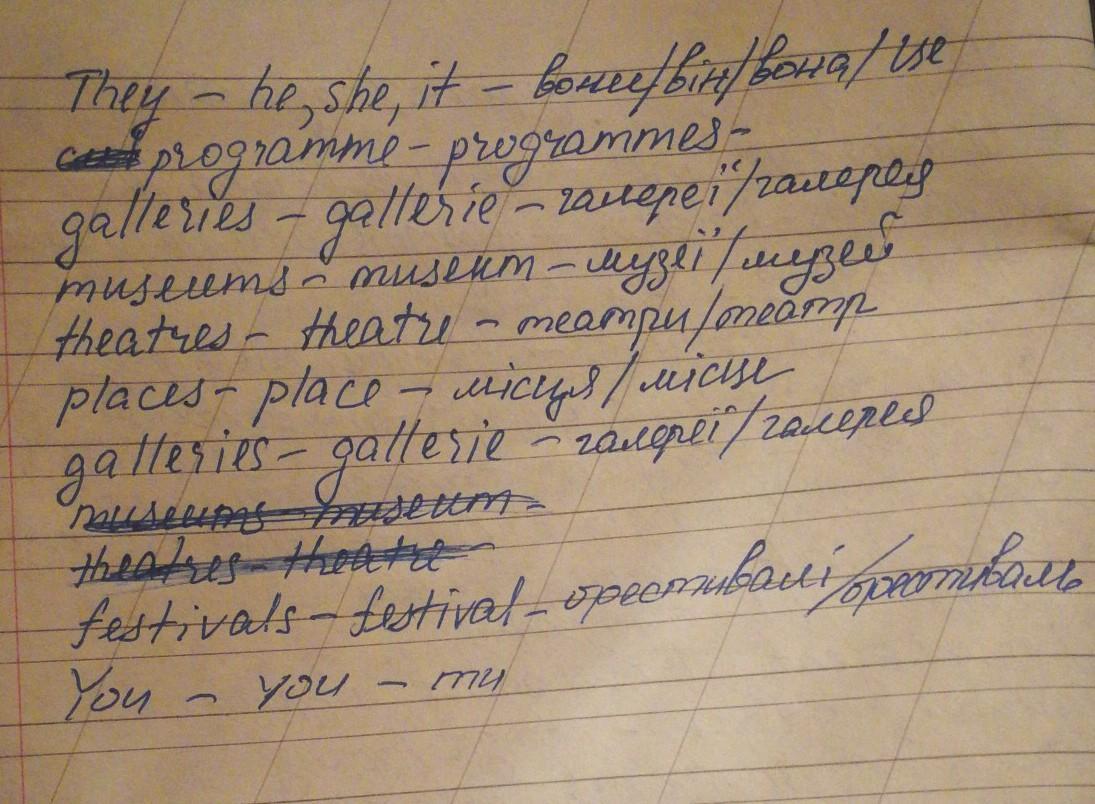 They – he, she, it – вони/він/вона/це
programme – programmes –
galleries – gallerie – галереї/галерея
museums – museum – музеї/музей
theatres – theatre – театри/театр
places – place – місця/місце
galleries – gallerie – галереї/галерея
museums – museum –
theatres – theatre –
festivals – festival – фестивалі/фестиваль
You – you – ти